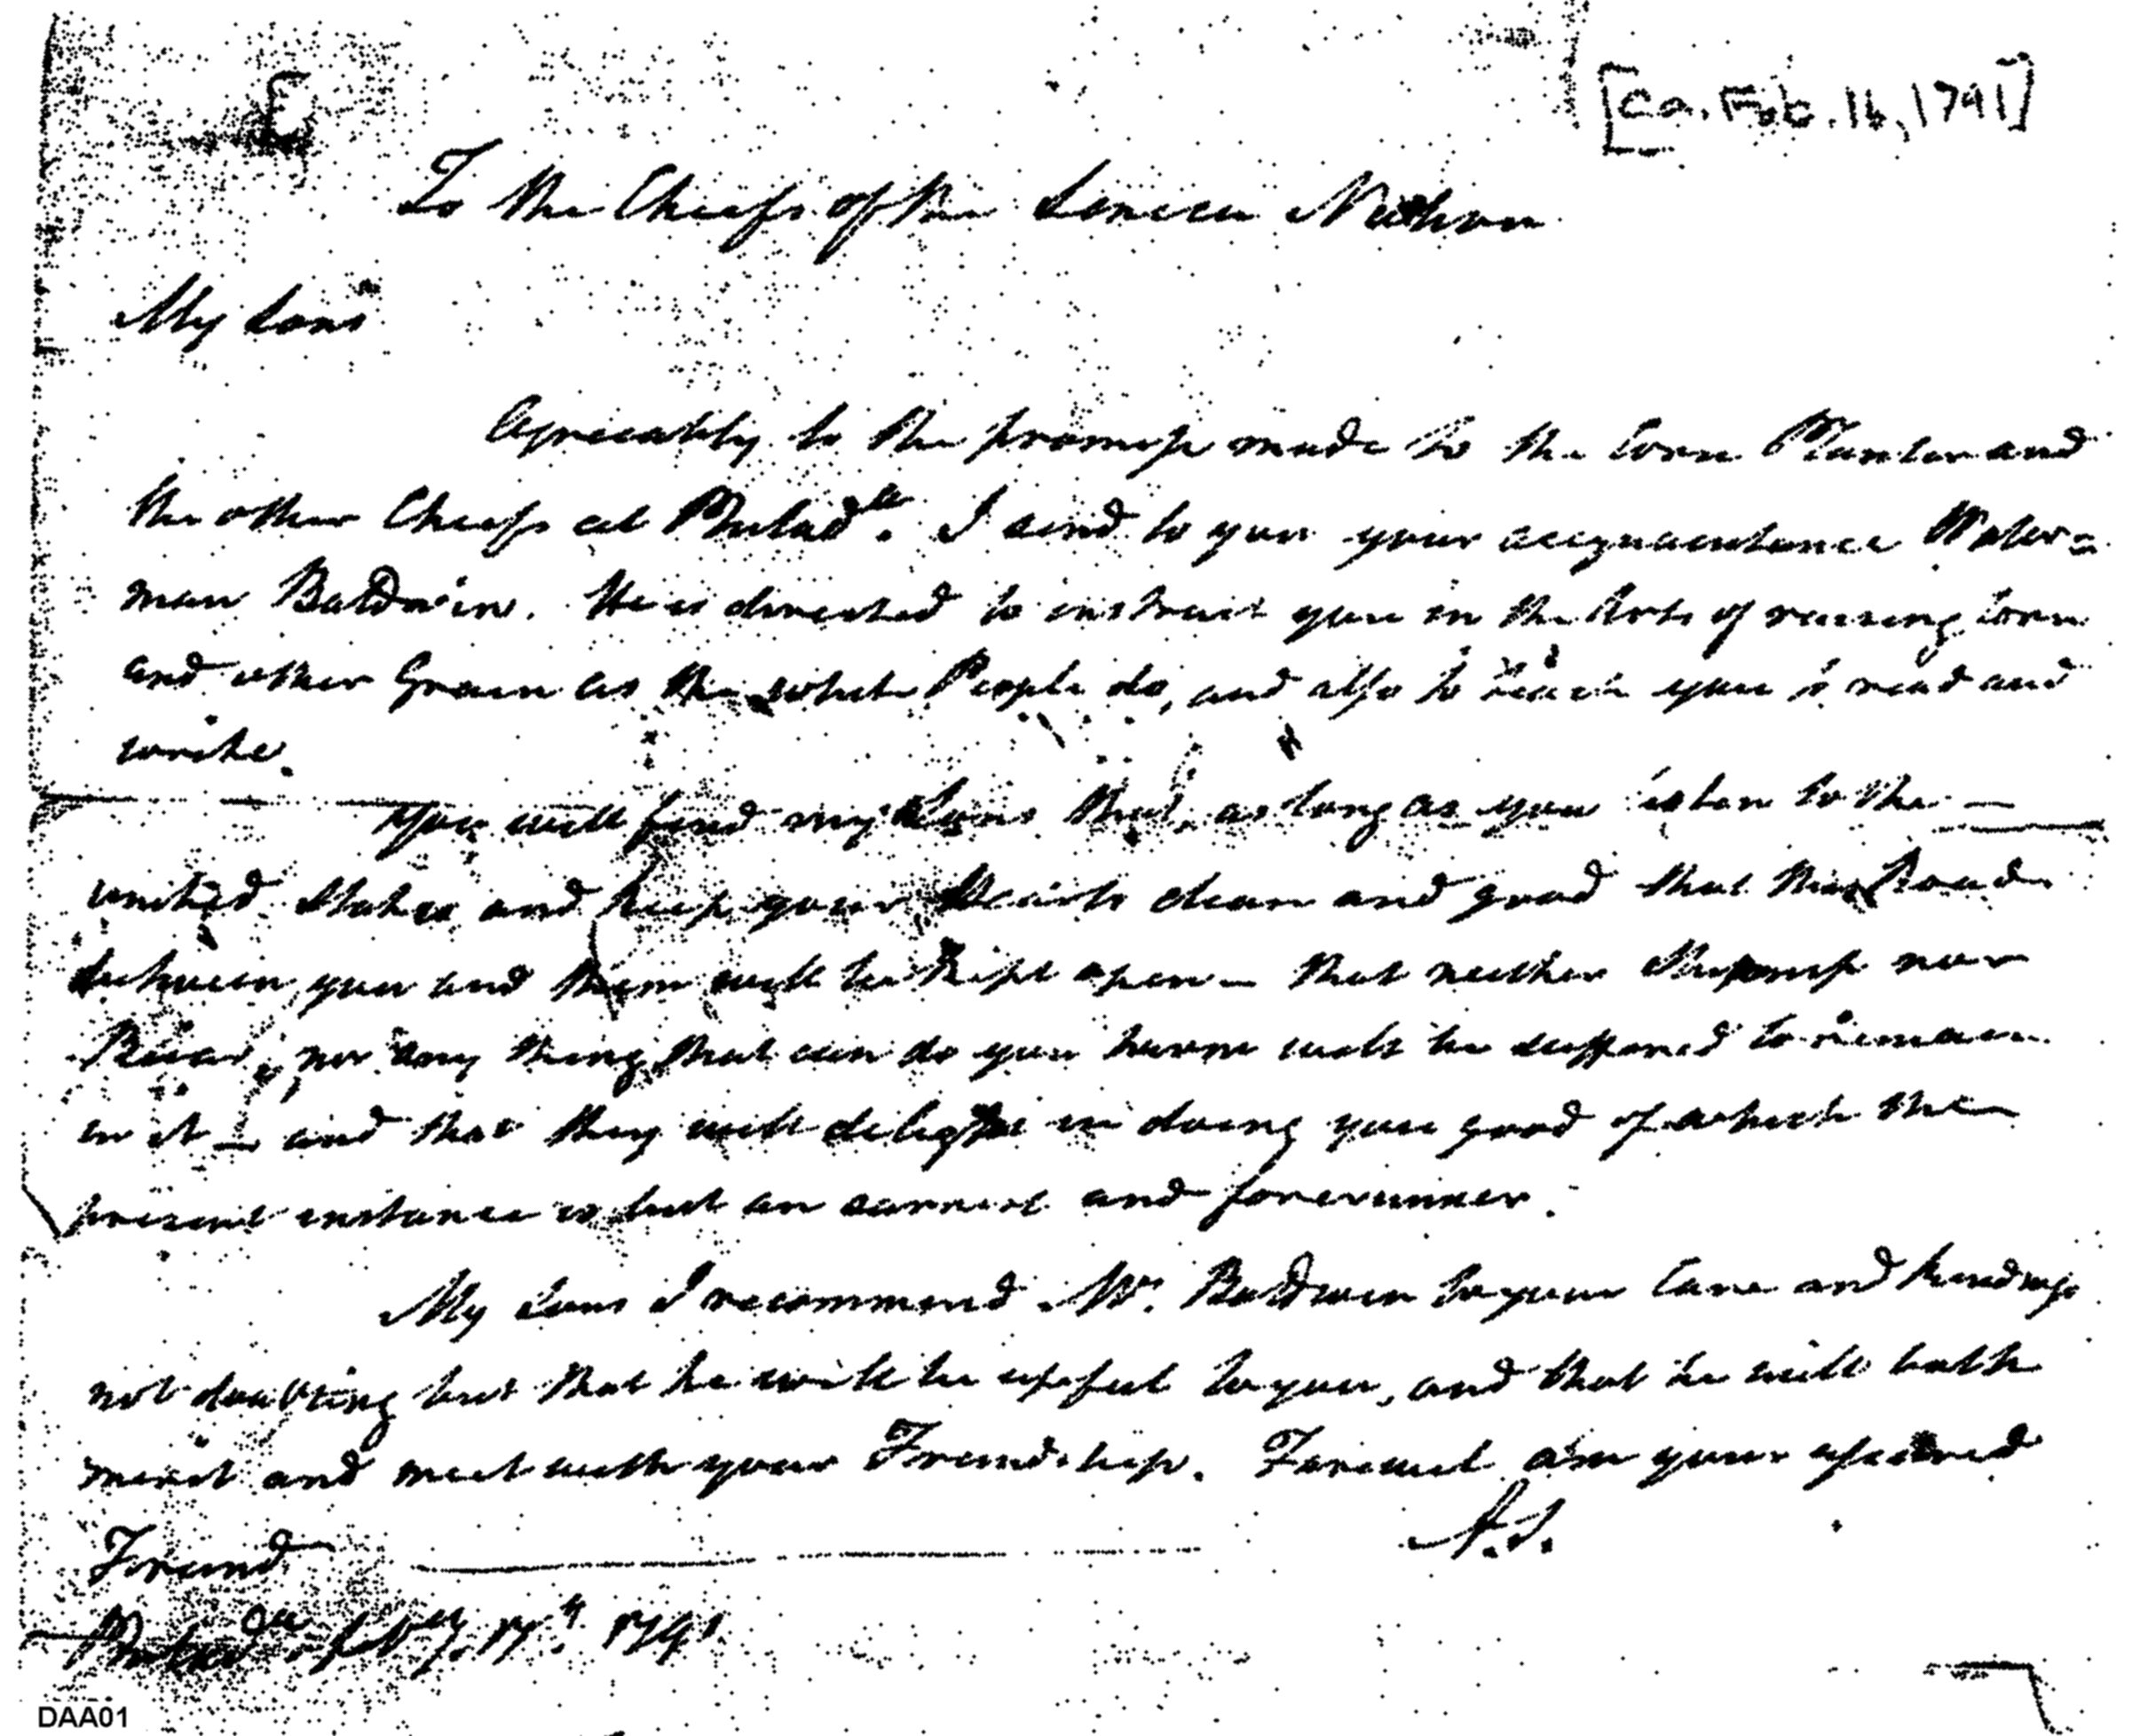 [ca. Feb. 16, 1791]
To the Chiefs of the Seneca Nation
My Sons
Agreeably to the promise made to the Corn Planter and
the other Chiefs at Philad.a I send to you your acquaintance Water=
man Baldwin. He is directed to instruct you in the Arts of raising Corn
and other Grain as the white People do, and also to teach you to read and
write.
You will find my Sons that, as long as you listen to the —
united States and keep your Hearts clean and good that the Road
between you and them will be kept open — that neither Stump nor
Briar, nor any thing that can do you harm will be suffered to remain
in it — and that they will delight in doing you good of which the
present instance is but an earnest and forerunner.
My Sons I recommend Mr. Baldwin to your Care and kindness
not doubting but that he will be useful to you, and that he will both
merit and meet with your Friendship. Farewel am your assured
Friend
A.S.
Philad.a Feby. 17.h 1791
DAA01